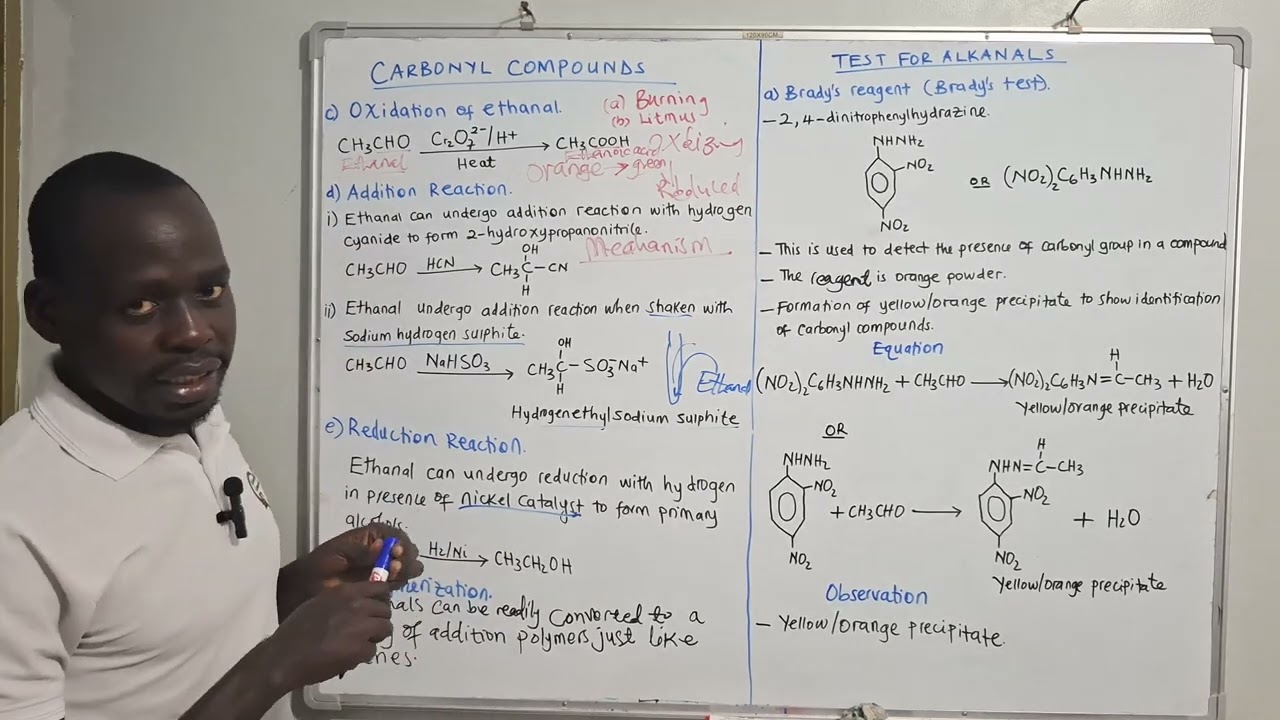 120X90CM
CARBONYL COMPOUNDS
c) Oxidation of ethanal.
(a) Burning
(b) Litmus
CH₃CHO Cr₂O₇²⁻/H⁺ Heat → CH₃COOH Oxidizing
Ethanal Ethanoic acid
Orange → green
Reduced
d) Addition Reaction.
i) Ethanal can undergo addition reaction with hydrogen
cyanide to form 2-hydroxypropanonitrile.
Mechanism
OH
CH₃CHO HCN → CH₃C–CN
H
ii) Ethanal undergo addition reaction when shaken with
Sodium hydrogen sulphite.
OH
CH₃CHO NaHSO₃ → CH₃C–SO₃⁻Na⁺
H
Ethanal
Hydrogenethylsodium sulphite
e) Reduction Reaction.
Ethanal can undergo reduction with hydrogen
in presence of nickel catalyst to form primary
H₂/Ni → CH₃CH₂OH
can be readily converted to a
of addition polymers just like
TEST FOR ALKANALS
a) Brady's reagent (Brady's test).
– 2,4-dinitrophenylhydrazine.
NHNH₂
NO₂
OR (NO₂)₂C₆H₃NHNH₂
NO₂
– This is used to detect the presence of carbonyl group in a compound
– The reagent is orange powder.
– Formation of yellow/orange precipitate to show identification
of carbonyl compounds.
Equation
H
(NO₂)₂C₆H₃NHNH₂ + CH₃CHO → (NO₂)₂C₆H₃N=C–CH₃ + H₂O
Yellow/orange precipitate
OR
H
NHNH₂ NHN=C–CH₃
NO₂ NO₂
+ CH₃CHO → + H₂O
NO₂ NO₂
Yellow/orange precipitate
Observation
– Yellow/orange precipitate.